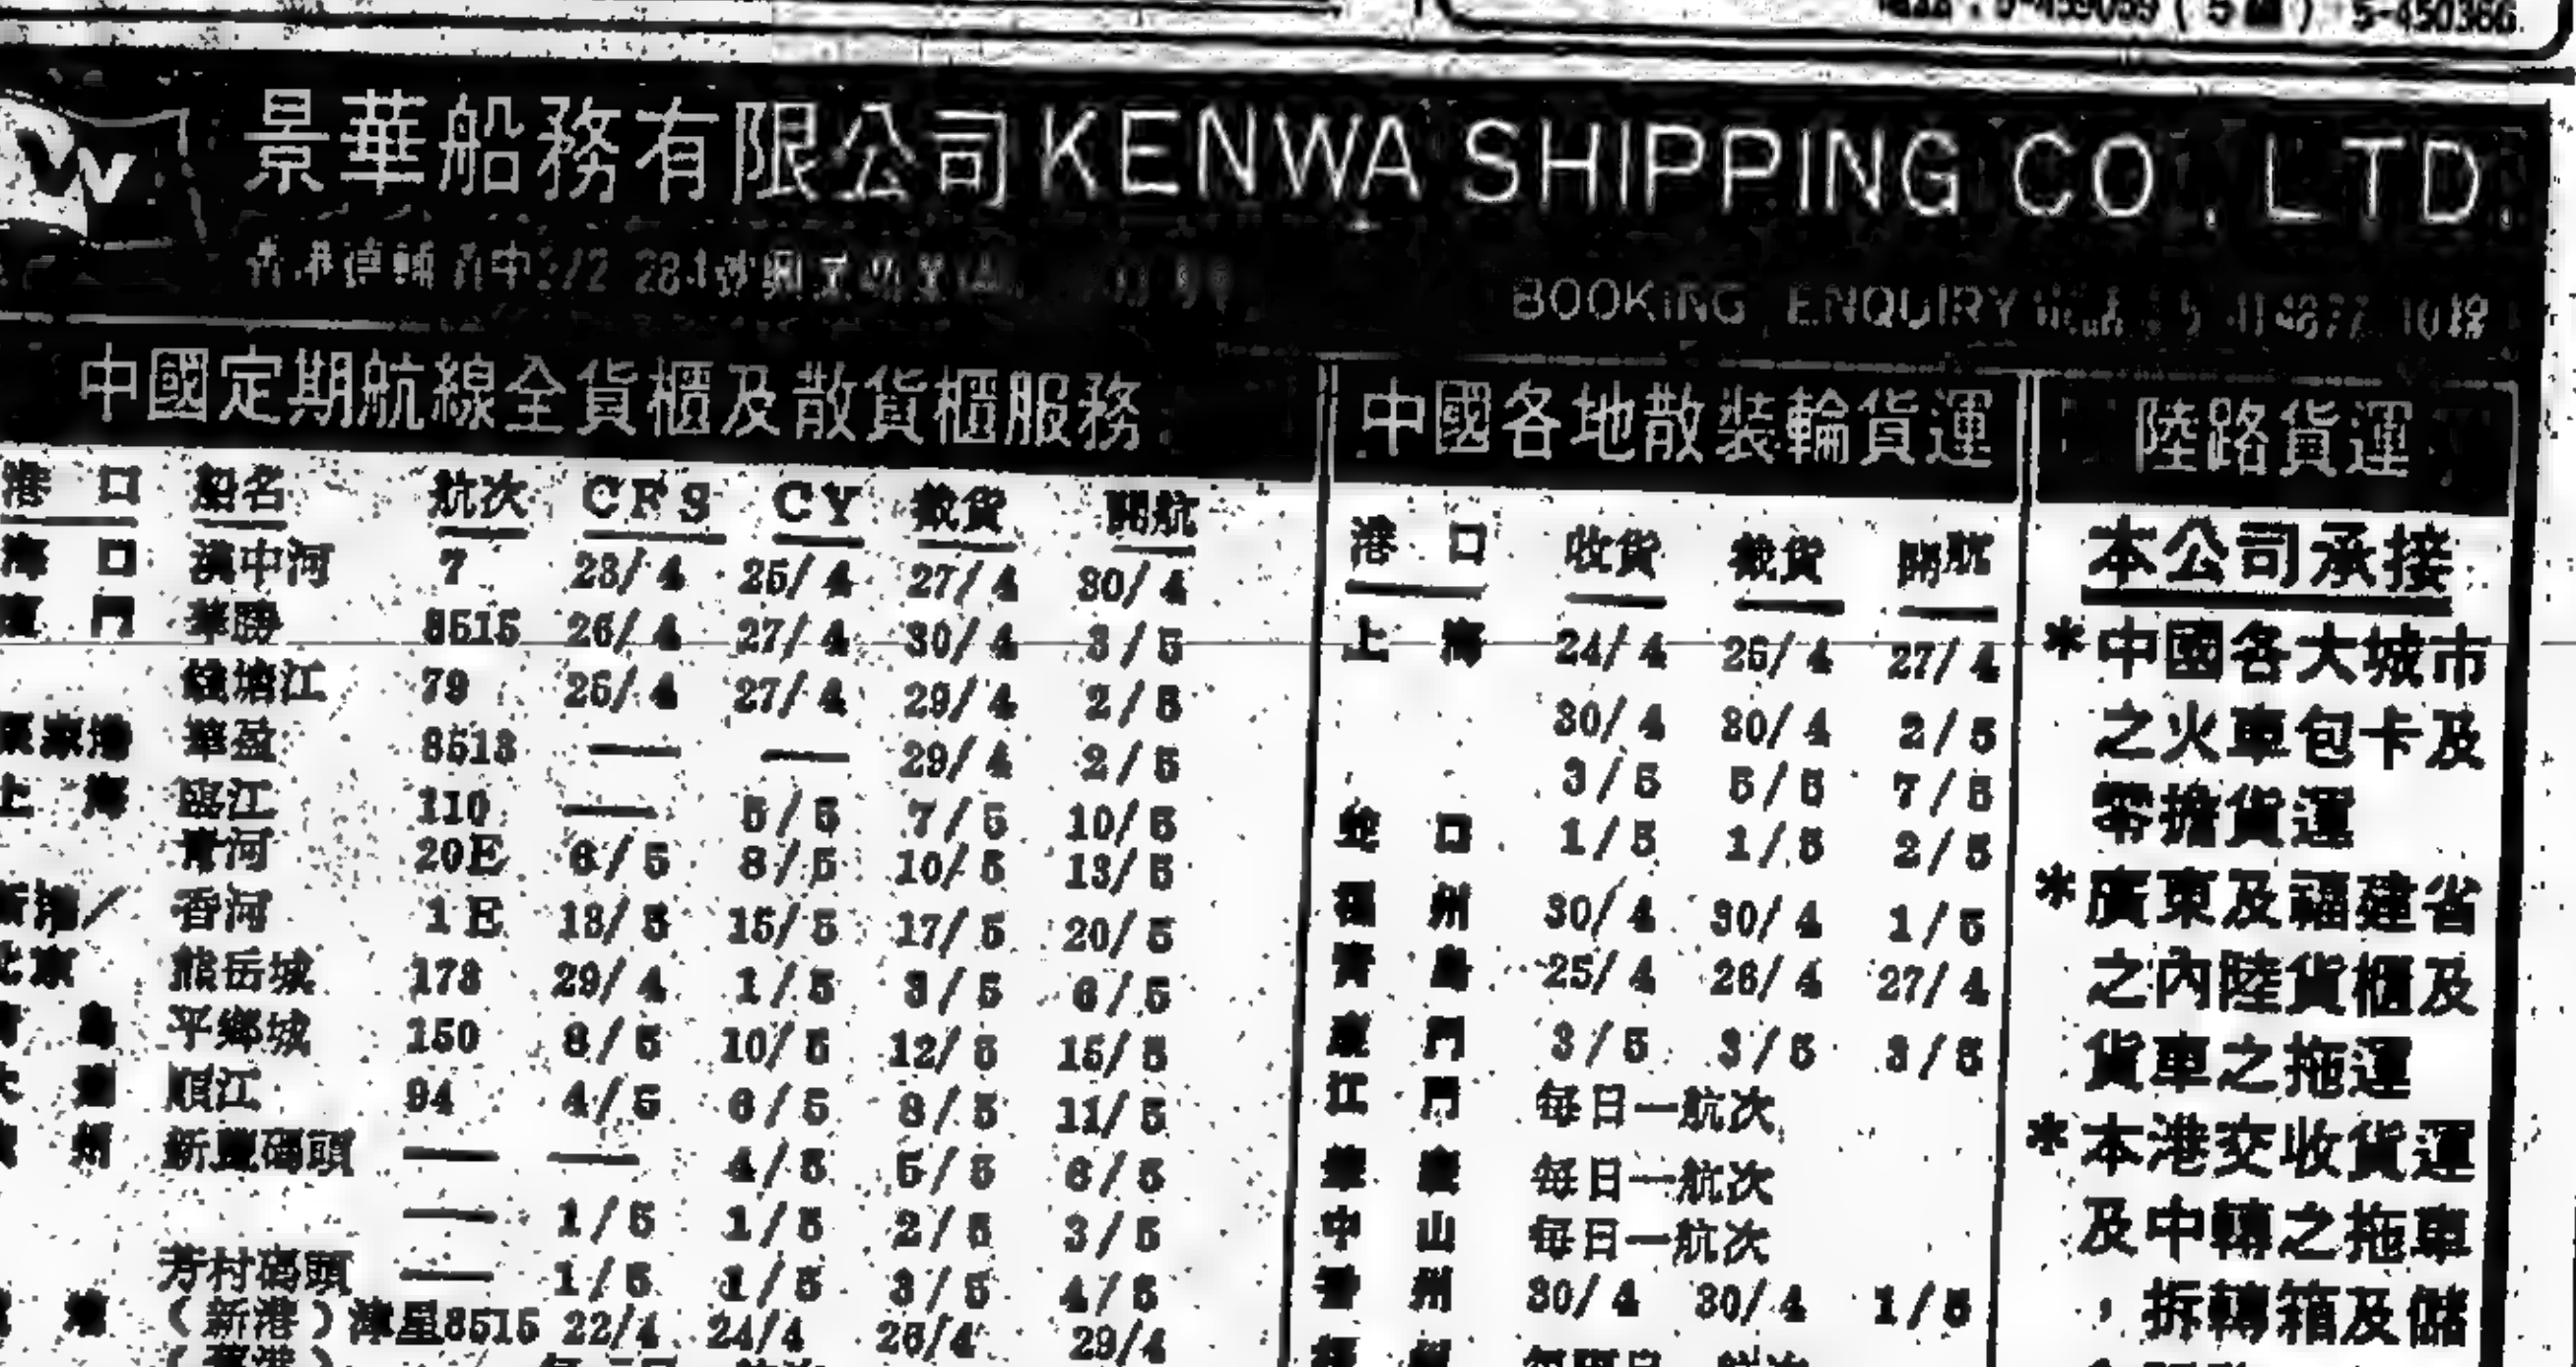 5-459059 ( 5 線 ) 5-450366
景華船務有限公司 KENWA SHIPPING CO., LTD.
BOOKING ENQUIRY
中國定期航線全貨櫃及散貨櫃服務
港 口 船名 航次 CFS CY 截貨 開航
海 口 漢中河 7 23/4 25/4 27/4 30/4
廈 門 華勝 8515 26/4 27/4 30/4 3/5
錢塘江 79 26/4 27/4 29/4 2/5
張家港 華盈 8513 — — 29/4 2/5
上 海 臨江 110 — 5/5 7/5 10/5
青河 20E 6/5 8/5 10/5 13/5
新港/ 香河 1E 13/5 15/5 17/5 20/5
北京 熊岳城 178 29/4 1/5 3/5 6/5
青 島 平鄉城 150 8/5 10/5 12/5 15/5
大 連 順江 94 4/5 6/5 8/5 11/5
廣 州 新風碼頭 — — 4/5 5/5 6/5
— 1/5 1/5 2/5 3/5
芳村碼頭 — 1/5 1/5 3/5 4/5
(新港) 津星8515 22/4 24/4 26/4 29/4
中國各地散裝輪貨運
港 口 收貨 截貨 開航
上 海 24/4 26/4 27/4
30/4 30/4 2/5
3/5 5/5 7/5
蛇 口 1/5 1/5 2/5
福 州 30/4 30/4 1/5
青 島 25/4 26/4 27/4
廈 門 3/5 3/5 3/5
江 門 每日一航次
肇 慶 每日一航次
中 山 每日一航次
州 30/4 30/4 1/5
陸路貨運
本公司承接
*中國各大城市
之火車包卡及
零擔貨運
*廣東及福建省
之內陸貨櫃及
貨車之拖運
*本港交收貨運
及中轉之拖車
,拆轉箱及儲